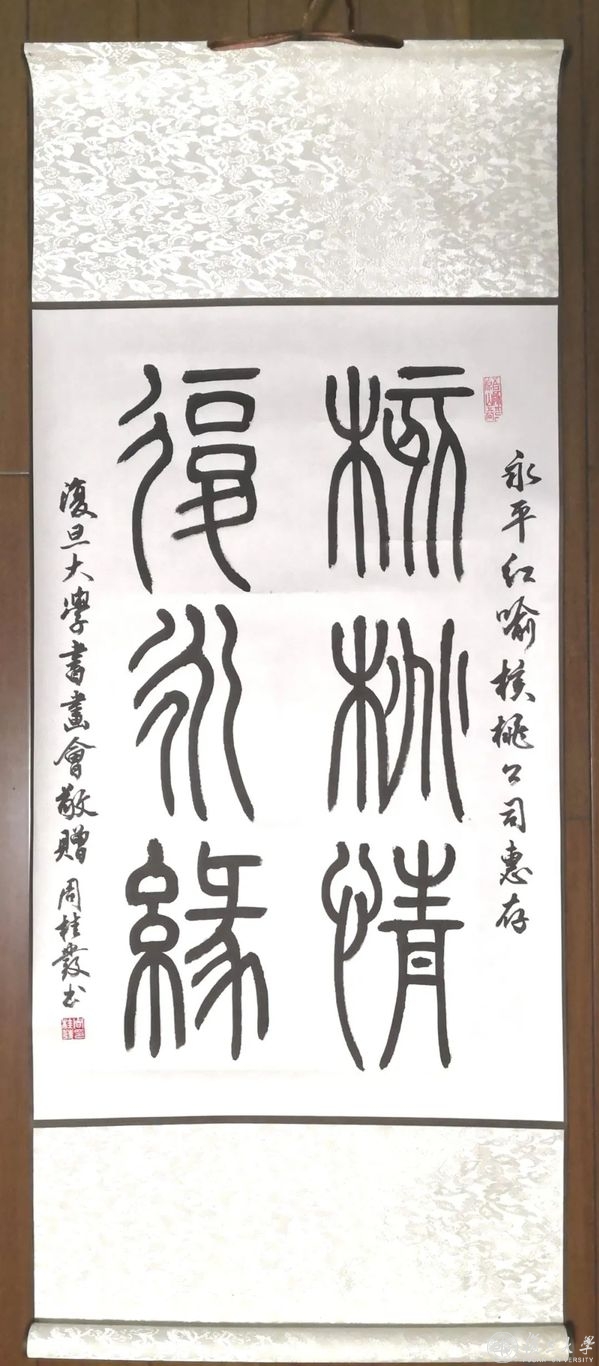 永平红喻核桃公司惠存
核桃情
復永緣
復旦大學書畫會敬贈 周桂發书
大學
UNIVERSITY